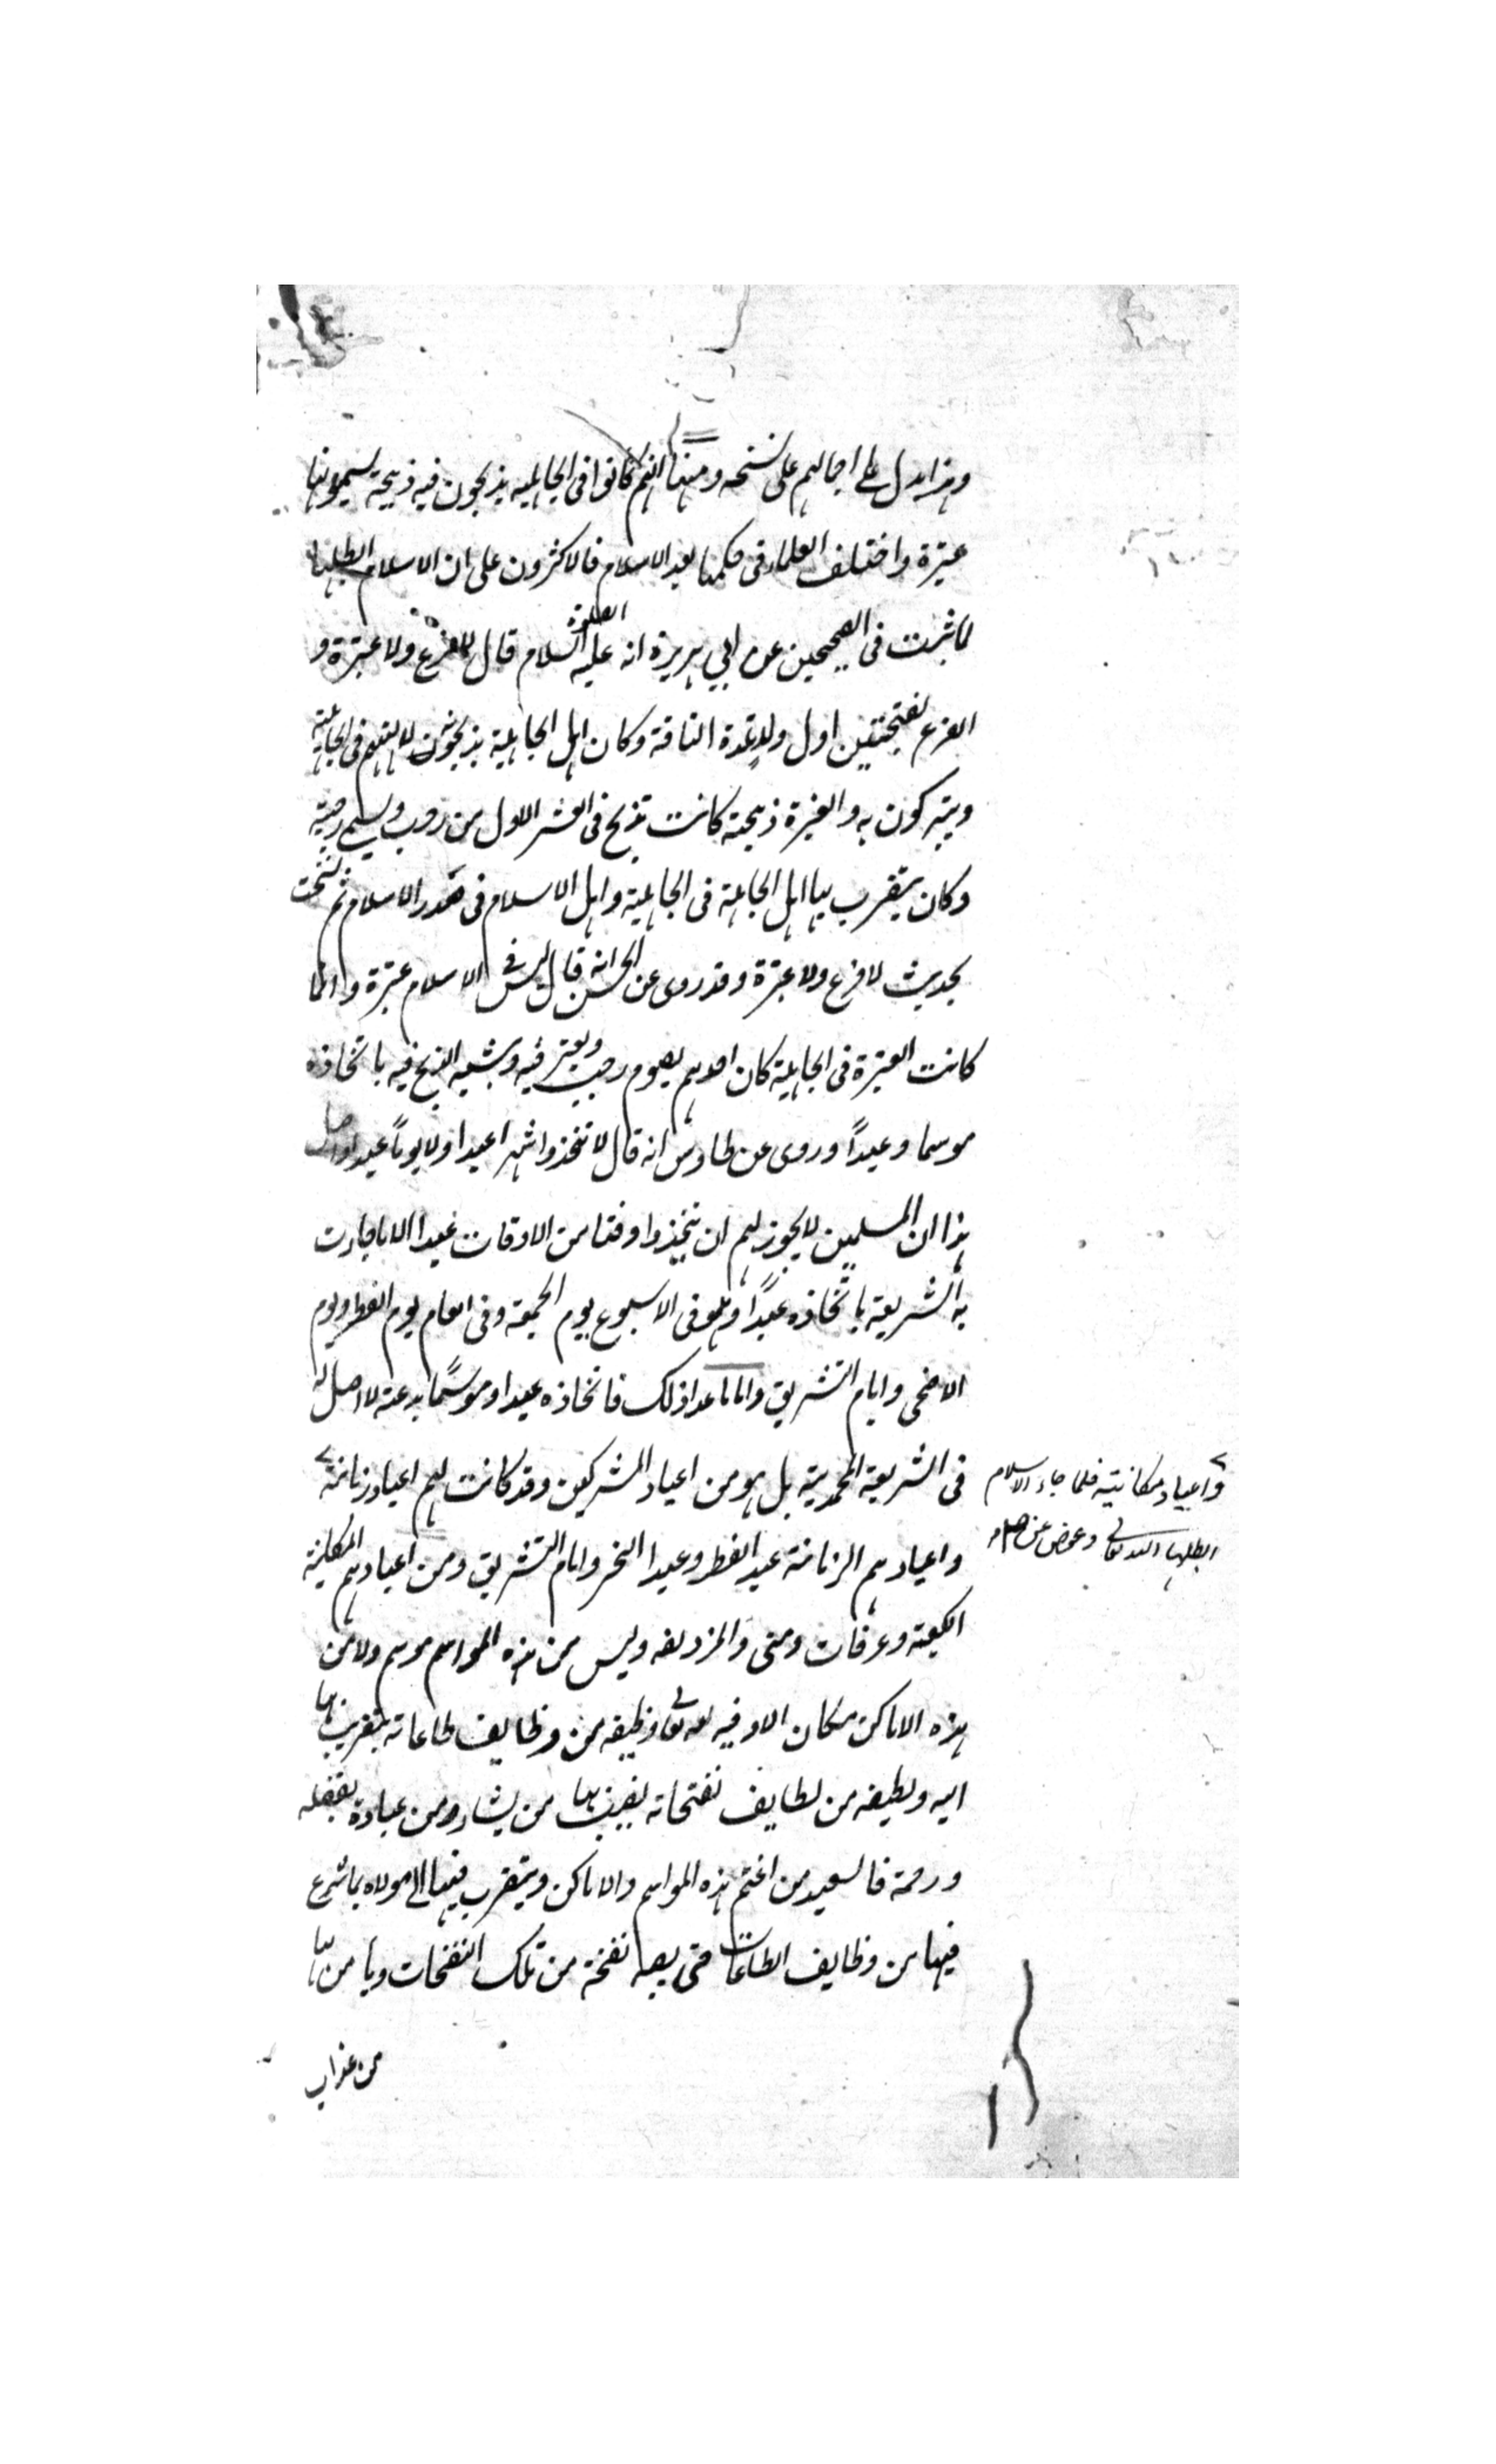 وهذا يدل على اجمالهم على نسخه ومنها انهم كانوا فى الجاهلية يذبحون فيه ذبيحة يسمونها
عتيرة واختلف العلماء فى حكمها بعد الاسلام فالاكثرون على ان الاسلام ابطلها
لما ثبت فى الصحيحين عن ابي هريرة انه عليه الصلوة السلام قال لا فرع ولا عتيرة و
الفرع بفتحتين اول ولد تلده الناقة وكان اهل الجاهلية يذبحونه لآلهتهم فى الجاهلية
ويتبركون به والعتيرة ذبيحة كانت تذبح فى العشر الاول من رجب ويسمى رجبية
وكان يتقرب بها اهل الجاهلية فى الجاهلية واهل الاسلام فى صدر الاسلام ثم نسخت
بحديث لا فرع ولا عتيرة وقد روى عن الحسن انه قال ليس فى الاسلام عتيرة وانما
كانت العتيرة فى الجاهلية كان احدهم يصوم رجب ويعتر فيه ويشبه الذبح فيه باتخاذه
موسما وعيدًا وروى عن طاوس انه قال لا تتخذوا شهرا عيدا ولا يوماً عيدا واصل
هذا ان المسلمين لا يجوز لهم ان يتخذوا وقتا من الاوقات عيدا الا ما جاءت
به الشريعة باتخاذه عيدًا وهو فى الاسبوع يوم الجمعة وفى العام يوم الفطر ويوم
الاضحى وايام التشريق واما ما عدا ذلك فاتخاذه عيدا وموسمًا بدعة لا اصل له
فى الشريعة المحمدية بل هو من اعياد المشركين وقد كانت لهم اعياد زمانية
واعياد مكانية فلما جاء الاسلام
ابطلها الله تعالى وعوض عن
واعيادهم الزمانية عيد الفطر وعيد النحر وايام التشريق ومن اعيادهم المكانية
الكعبة وعرفات ومنى والمزدلفه وليس من هذه المواسم موسم ولا من
هذه الاماكن مكان الا وفيه لله تعالى وظيفه من وظايف طاعاته يتقرب بها
اليه ولطيفه من لطايف نفحاته يصيب بها من يشاء ومن عباده بفضله
ورحمة فالسعيد من اغتنم هذه المواسم والاماكن ويتقرب فيها الى مولاه بما شرع
فيها من وظايف الطاعات حتى يصيبه نفحة من تلك النفحات ويأمن بها
من عذاب